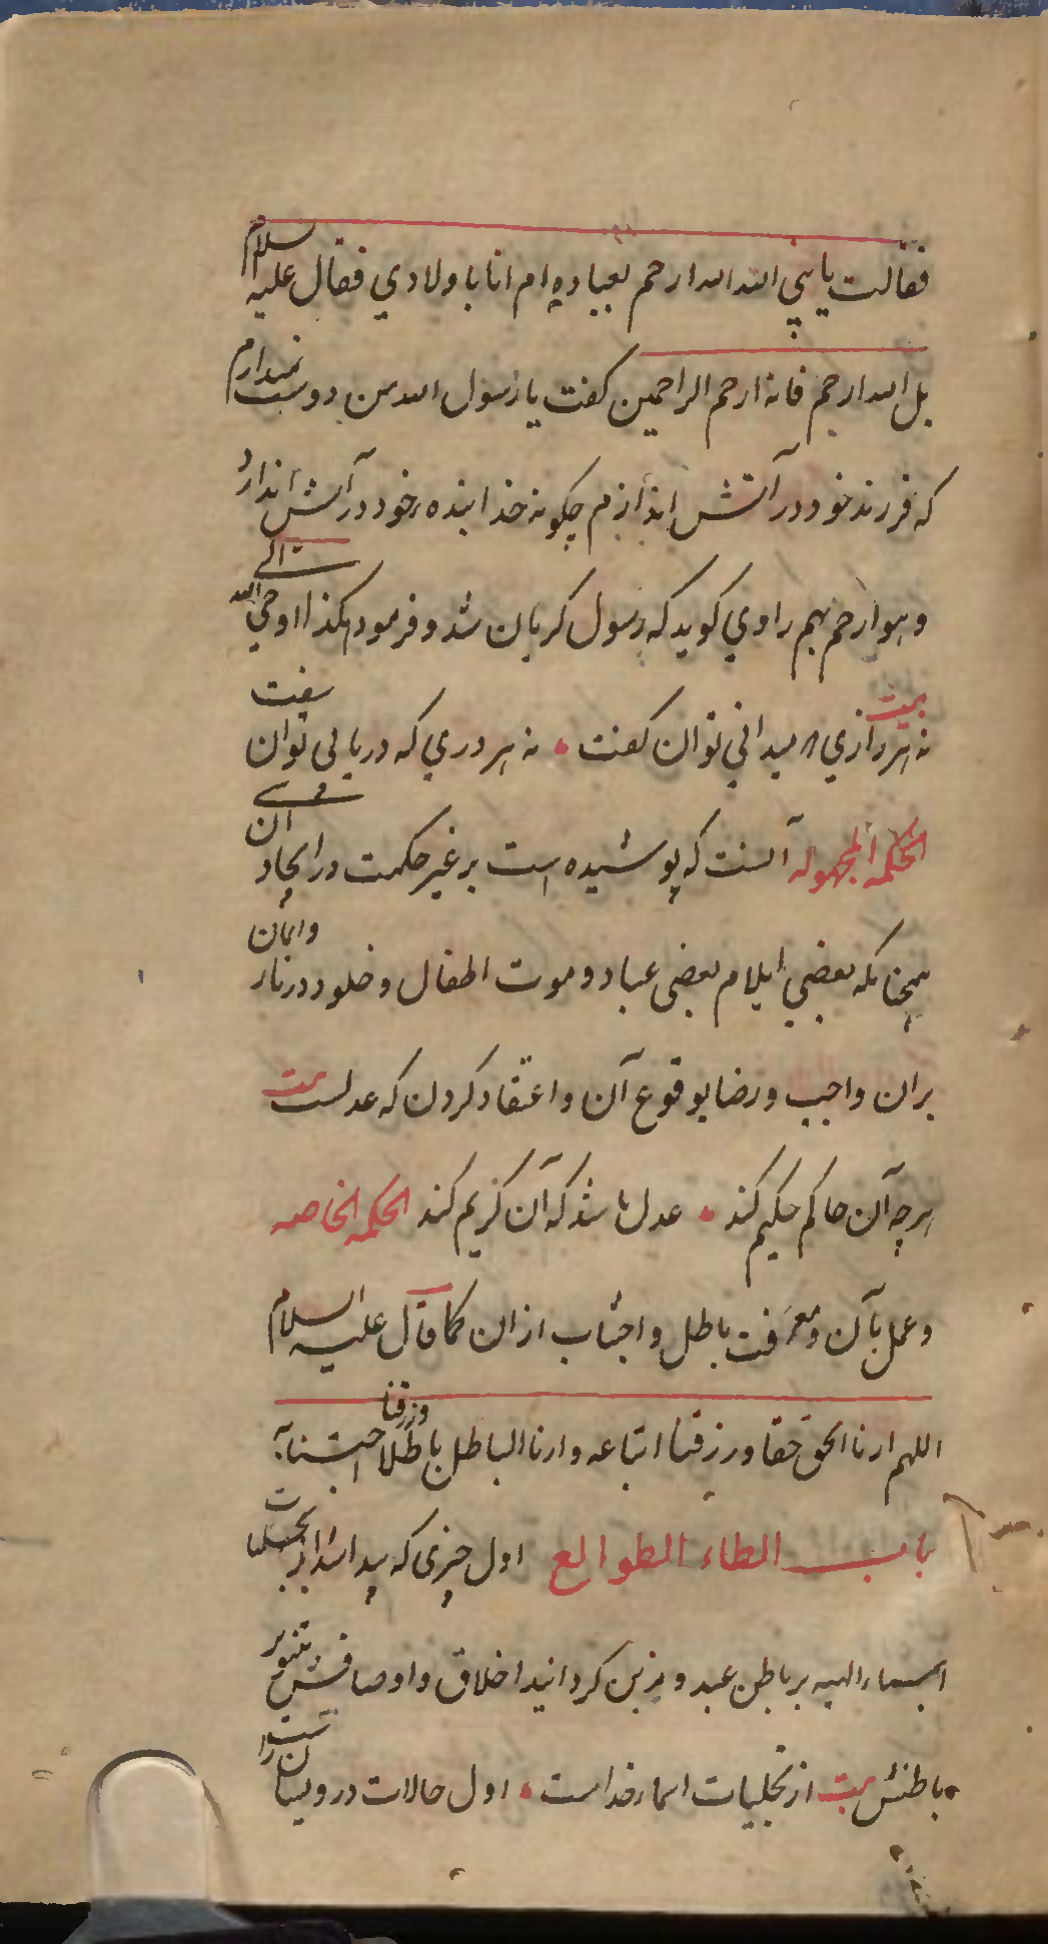 فقالت یا نبی الله الله ارحم بعباده ام انا باولادي فقال علیه السلام
بل الله ارحم فانه ارحم الراحمین کفت یا رسول الله من دوست نمیدارم
که فرزند خود در آتش اندازم چکونه خدا بنده خود در آتش اندازد
و هو ارحم بهم راوي کوید که رسول کریان شد و فرمود هکذا اوحی الله الی
بیت نه هر رازي که میدانی توان کفت • نه هر دري که دریابی توان سفت
الحکمه المجهوله آنست که پوشیده است بر غیر حکمت در ایجاد ان
همچنانکه بعضي ایلام بعضی عباد و موت اطفال و خلود در نار وایمان
بران واجب و رضا بوقوع آن و اعتقاد کردن که عدلست بیت
هر چه آن حاکم حکیم کند • عدل باشد که آن کریم کند الحکمه الخاصه
و عمل بآن و معرفت باطل و اجتناب ازان کما قال علیه السلام
اللهم ارنا الحق حقا ورزقنا اتباعه وارنا الباطل باطلا ورزقنا اجتنابه
باب الطاء الطوالع اول چیزی که پیدا شد از تجلیات
اسماء الهیه بر باطن عبد و مزین کردانید اخلاق و اوصافش بتنویر
باطنش بیت از تجلیات اسماء خداست • اول حالات درویشان راست